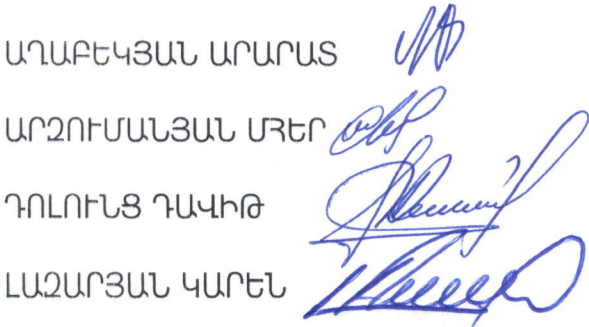 ԱՂԱԲԵԿՅԱՆ ԱՐԱՐԱՏ
ԱՐԶՈՒՄԱՆՅԱՆ ՄՀԵՐ
ԴՈԼՈՒՆՑ ԴԱՎԻԹ
ԼԱԶԱՐՅԱՆ ԿԱՐԵՆ